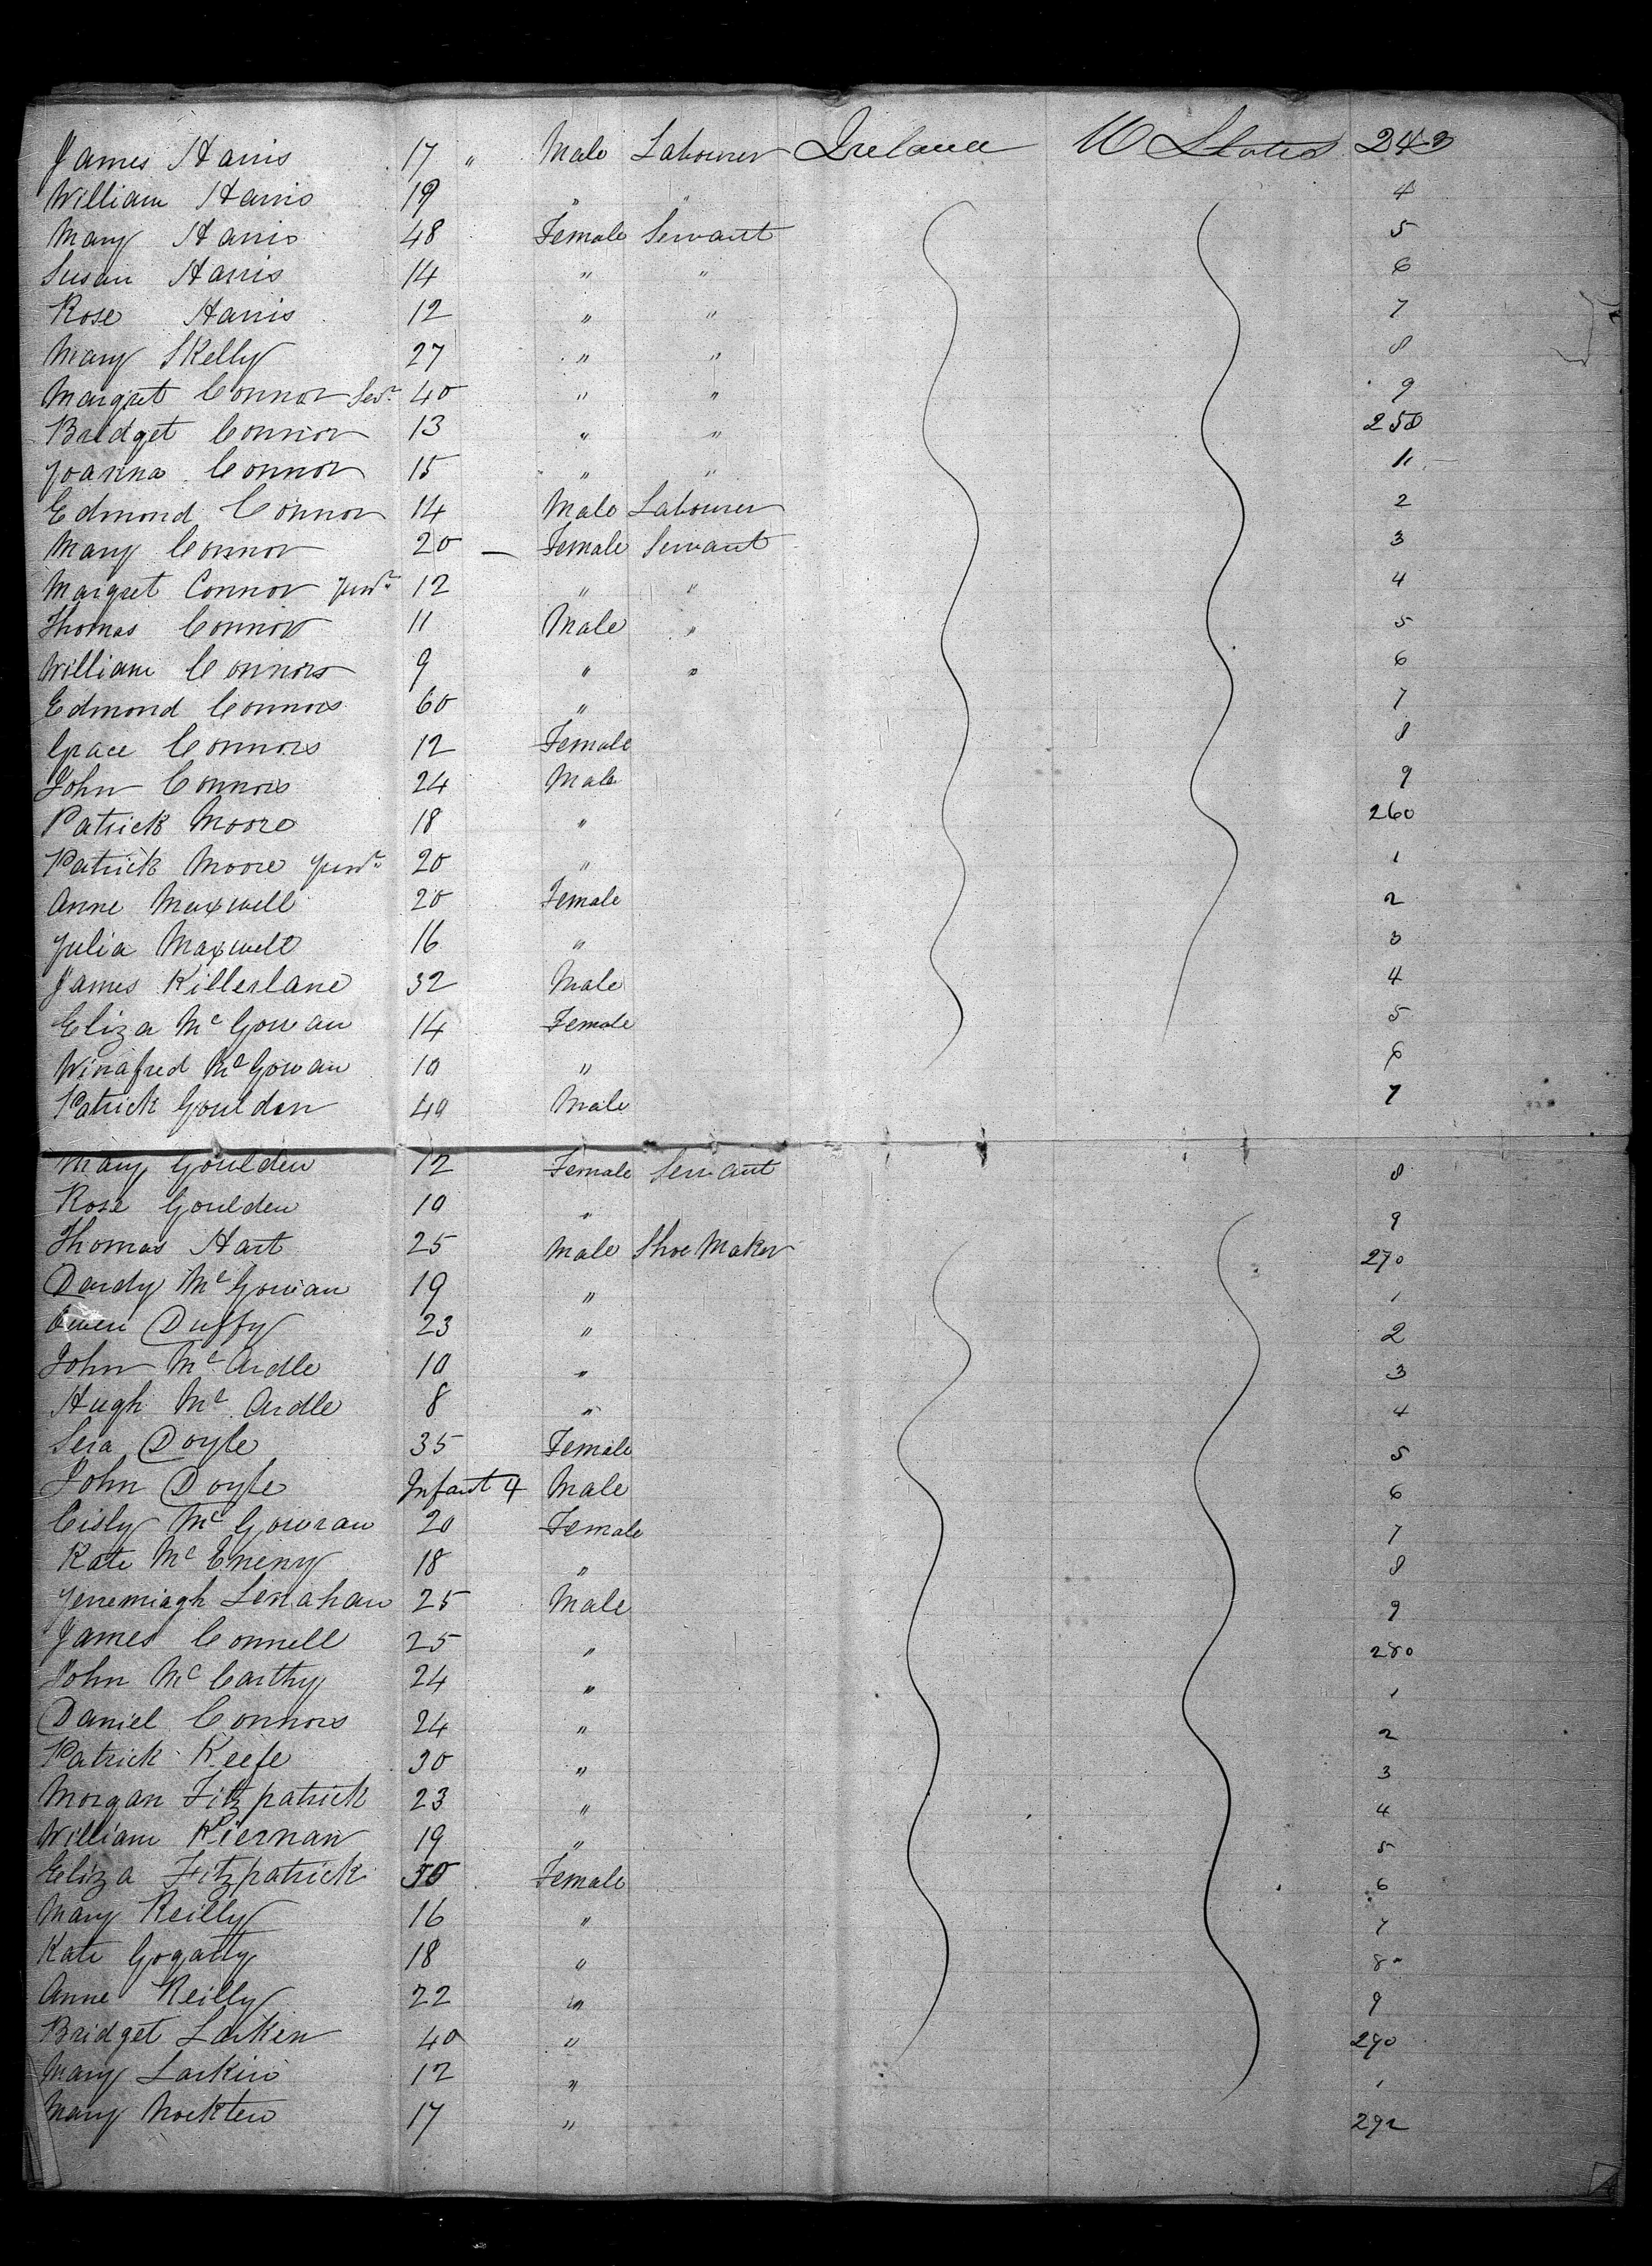 James Harris 17 " Male Labourer Ireland U States 243
William Harris 19 " " 4
Mary Harris 48 Female Servant 5
Susan Harris 14 " " 6
Rose Harris 12 " " 7
Mary Skelly 27 " " 8
Margret Connor Senr 40 " " 9
Bridget Connor 13 " " 250
Joanna Connor 15 " " 1
Edmond Connor 14 Male Labourer 2
Mary Connor 20 — Female Servant 3
Margret Connor Junr 12 " " 4
Thomas Connor 11 Male " 5
William Connors 9 " " 6
Edmond Connors 60 " 7
Grace Connors 12 Female 8
John Connors 24 Male 9
Patrick Moore 18 " 260
Patrick Moore Junr 20 " 1
Anne Maxwell 20 Female 2
Julia Maxwell 16 " 3
James Killerlane 32 Male 4
Eliza Mc Gowan 14 Female 5
Winafred Mc Gowan 10 " 6
Patrick Goulden 40 Male 7
Mary Goulden 12 Female Servant 8
Rose Goulden 10 " 9
Thomas Hart 25 Male Shoe Maker 270
Dardy Mc Gowan 19 " 1
Owen Duffy 23 " 2
John Mc Ardle 10 " 3
Hugh Mc Ardle 8 " 4
Sera Doyle 35 Female 5
John Doyle Infant 4 Male 6
Cisly Mc Gowran 20 Female 7
Kate Mc Eneny 18 " 8
Jerremiagh Lenahan 25 Male 9
James Connell 25 " 280
John Mc Carthy 24 " 1
Daniel Connors 24 " 2
Patrick Keefe 30 " 3
Morgan Fitzpatrick 23 " 4
William Kiernan 19 " 5
Eliza Fitzpatrick 50 Female 6
Mary Reilly 16 " 7
Kate Gogatty 18 " 8
Anne Reilly 22 " 9
Bridget Larken 40 " 290
Mary Larkin 12 " 1
Mary Nockten 17 " 292